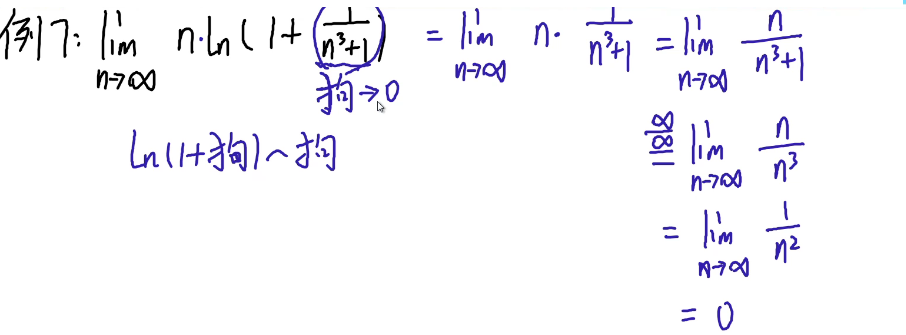 例17: lim n→∞ n·ln(1+ 1/(n³+1)) = lim n→∞ n· 1/(n³+1) = lim n→∞ n/(n³+1)
狗→0
ln(1+狗)~狗
∞/∞ = lim n→∞ n/n³
= lim n→∞ 1/n²
= 0